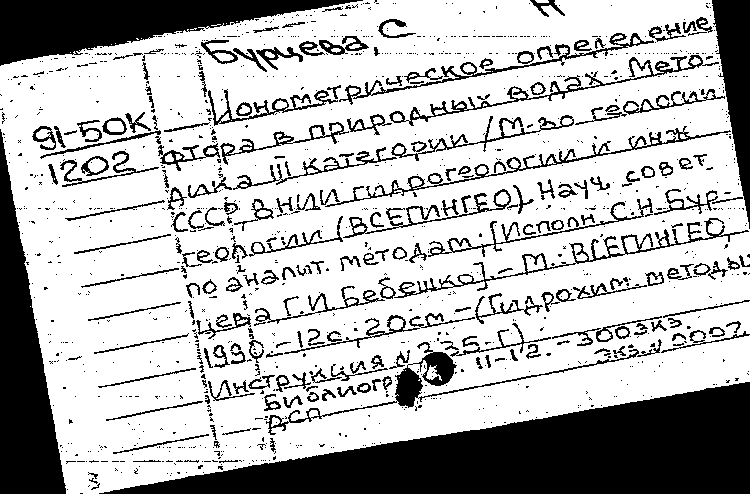 Н
Бурцева, С
91-50К
1202
Ионометрическое определение
фтора в природных водах: Мето-
дика III категории / М-во геологии
СССР, ВНИИ гидрогеологии и инж
геологии (ВСЕГИНГЕО), Науч. совет
по аналит. методам; [Исполн. С.Н. Бур-
цева, Г.И. Бебешко]. - М.: ВСЕГИНГЕО,
1990. - 12с.; 20см - (Гидрохим. методы
Инструкция N 235-Г)
Библиогр. 11-12. - 300экз.
ДСП экз. N 0007